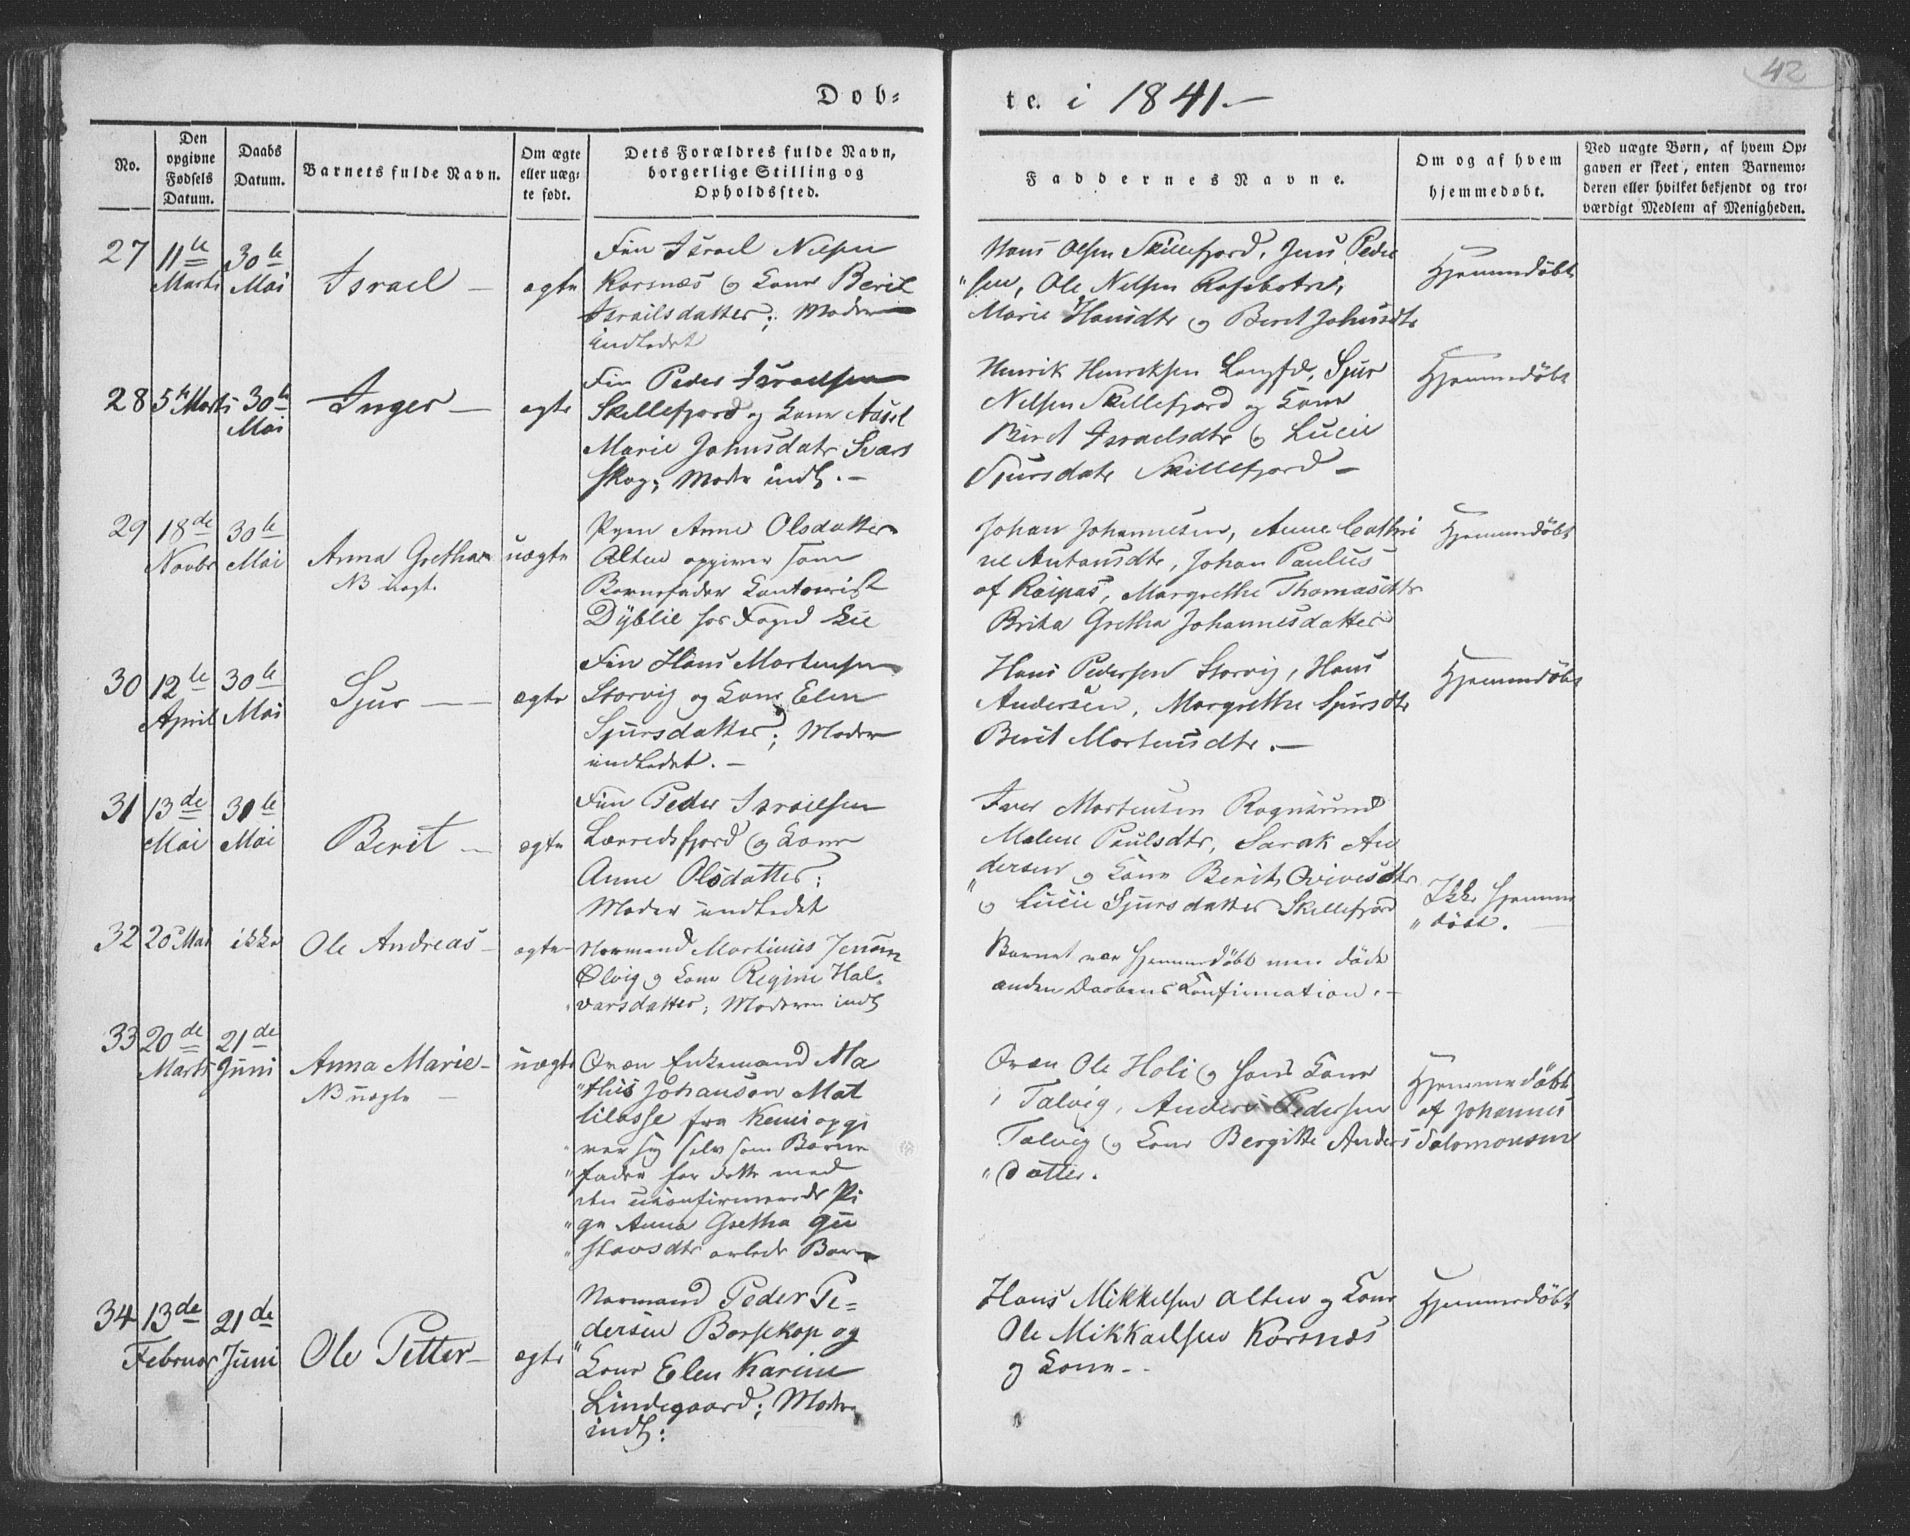 42
Døb=
te. i 1841.-
No.
Den opgivne Fødsels Datum.
Daabs Datum.
Barnets fulde Navn.
Om ægte eller uægte født.
Dets Forældres fulde Navn, borgerlige Stilling og Opholdssted.
Faddernes Navne.
Om og af hvem hjemmedøbt.
Ved uægte Børn, af hvem Op-
gaven er skeet, enten Barnemo-
deren eller hvilket bekjendt og tro-
værdigt Medlem af Menigheden.
27 11te Marts 30te Mai Israel - ægte
Fin Israel Nilsen
Korsnæs og Kone Berit
Israilsdatter; Moder
indledet
Hans Olsen Skillefjord, Jens Peder
sen, Ole Nilsen Rafsbotn,
Marie Hansdtr og Beret Johnsdtr
Hjemmedøbt
28 5te Marts 30te Mai Inger - ægte
Fin Peder Israelsen
Skillefjord og Kone
Marie Johnsdatr
skog; Modr indl. -
Henrik Henriksen Langfd, Sjur
Nilsen Skillefjord og Kone
Biret Israelsdtr og Lucie
Sjursdatr Skillefjord -
Hjemmedøbt
29 18de Novbr 30te Mai Anna Gretha uægte
NB uægt.
Pigen Anne Olsdatter
Alten opgiver som
Barnefader Kontorist
Dyblie hos Foged Lie
Johan Johannesen, Anne Cathri
ne Antonsdtr, Johan Paulus
af Raipas, Margrethe Thomasdtr
Brita Gretha Johannesdatter
Hjemmedøbt
30 12te April 30te Mai Sjur - ægte
Fin Hans Mortensen
Storvig og Kone Elen
Sjursdatter; Moder
indledet. -
Hans Pedersen Storvig, Hans
Andersen, Margrethe Sjursdtr
Berit Mortensdtr. -
Hjemmedøbt
31 13de Mai 31te Mai Berit - ægte
Fin Peder Israelsen
Lærredsfjord og Kone
Anne Olsdatter;
Moder indledet
Iver Mortensen Rognsund
Malene Paulsdtr, Sarak An
dersen og Kone Berit
og Lucie Sjursdatter Skillefjord
Ikke Hjemme
døbt.
32 20 Mai ikke Ole Andreas - ægte
Normand Martinus Jensen
Ølvig og Kone Regine Hal-
varsdatter; Moderen indl
Barnet var hjemmedøbt men døde
inden Daabens Confirmation. -
33 20de Marts 21de Juni Anna Marie - uægte
NB uægte -
Qvæn Enkemand Ma
this Johanson Mat
tilasse fra Kemi opgi
ver sig selv som Barne
fader for dette med
den uconfirmerede Pi
ge Anna Gretha Gu
stavsdtr avlede Barn
Qvæn Ole Holi og hans Kone
i Talvig, Anders Pedersen
Talvig og Kone Bergitte Anders
datter.
Hjemmedøbt
af Johannes
Salomonsen
34 13de Februar 21de Juni Ole Petter - ægte
Normand Peder Pe=
dersen Bossekop og
Kone Elen Karine
Lindegaard; Moder
indl:
Hans Mikkelsen Alten og Kone
Ole Mikkaelsen Korsnæs
og Kone. -
Hjemmedøbt